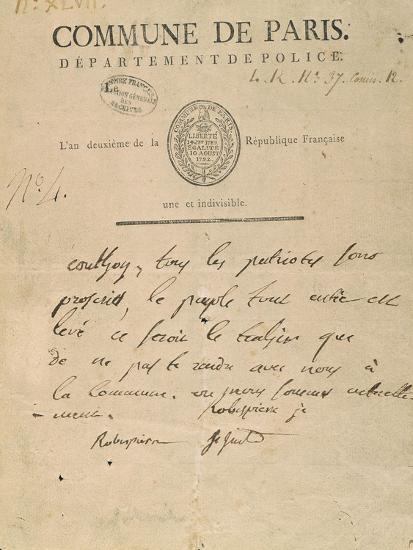 n°. XLVII.
COMMUNE DE PARIS.
DÉPARTEMENT DE POLICE.
L. R. N°. 37. Comis. 12.
CHAMBRE FRANÇAISE
ARCHIVES
COMMUNE DE PARIS
LIBERTÉ
14 JUIL 1789.
EGALITÉ
10 AOUST
1792.
L'an deuxième de la République Française
N°. 4.
une et indivisible.
couthon, tous les patriotes sont
proscrits, le peuple tout entier est
levé ce seroit le trahir que
de ne pas te rendre avec nous à
la Commune. ou nous sommes actuelle-
ment. Robespierre je
Robespierre St just